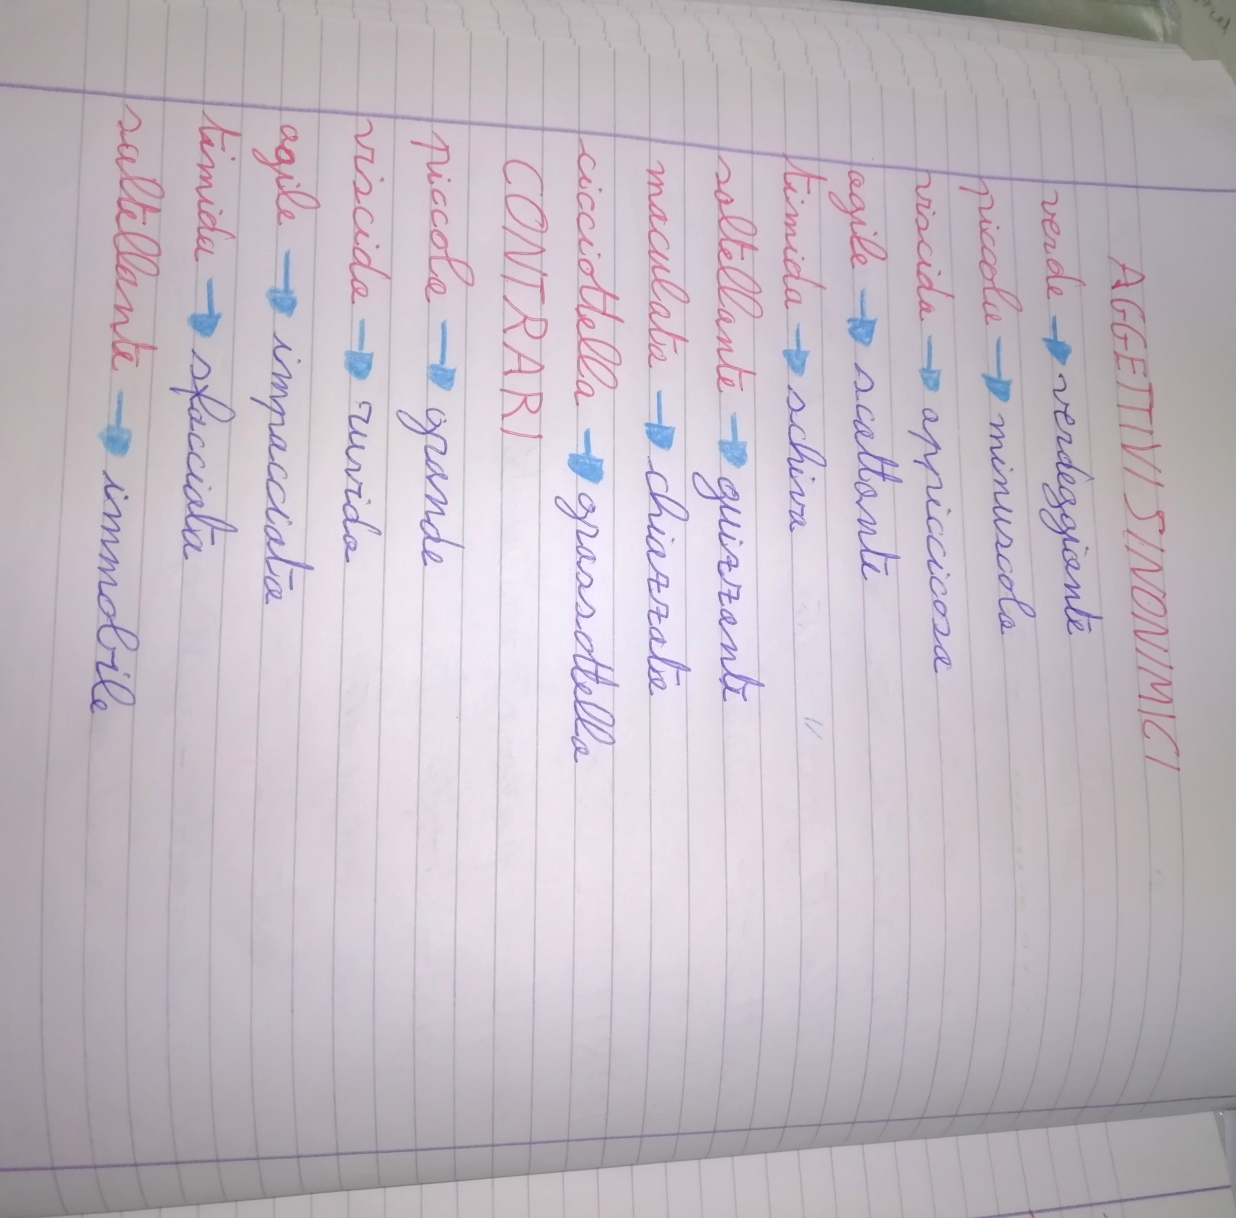 AGGETTIVI SINONIMICI
verde → verdeggiante
piccola → minuscola
viscida → appiccicosa
agile → scattante
timida → schiva
saltellante → guizzante
maculata → chiazzata
cicciottella → grassottella
CONTRARI
piccola → grande
viscida → ruvida
agile → impacciata
timida → sfacciata
saltellante → immobile